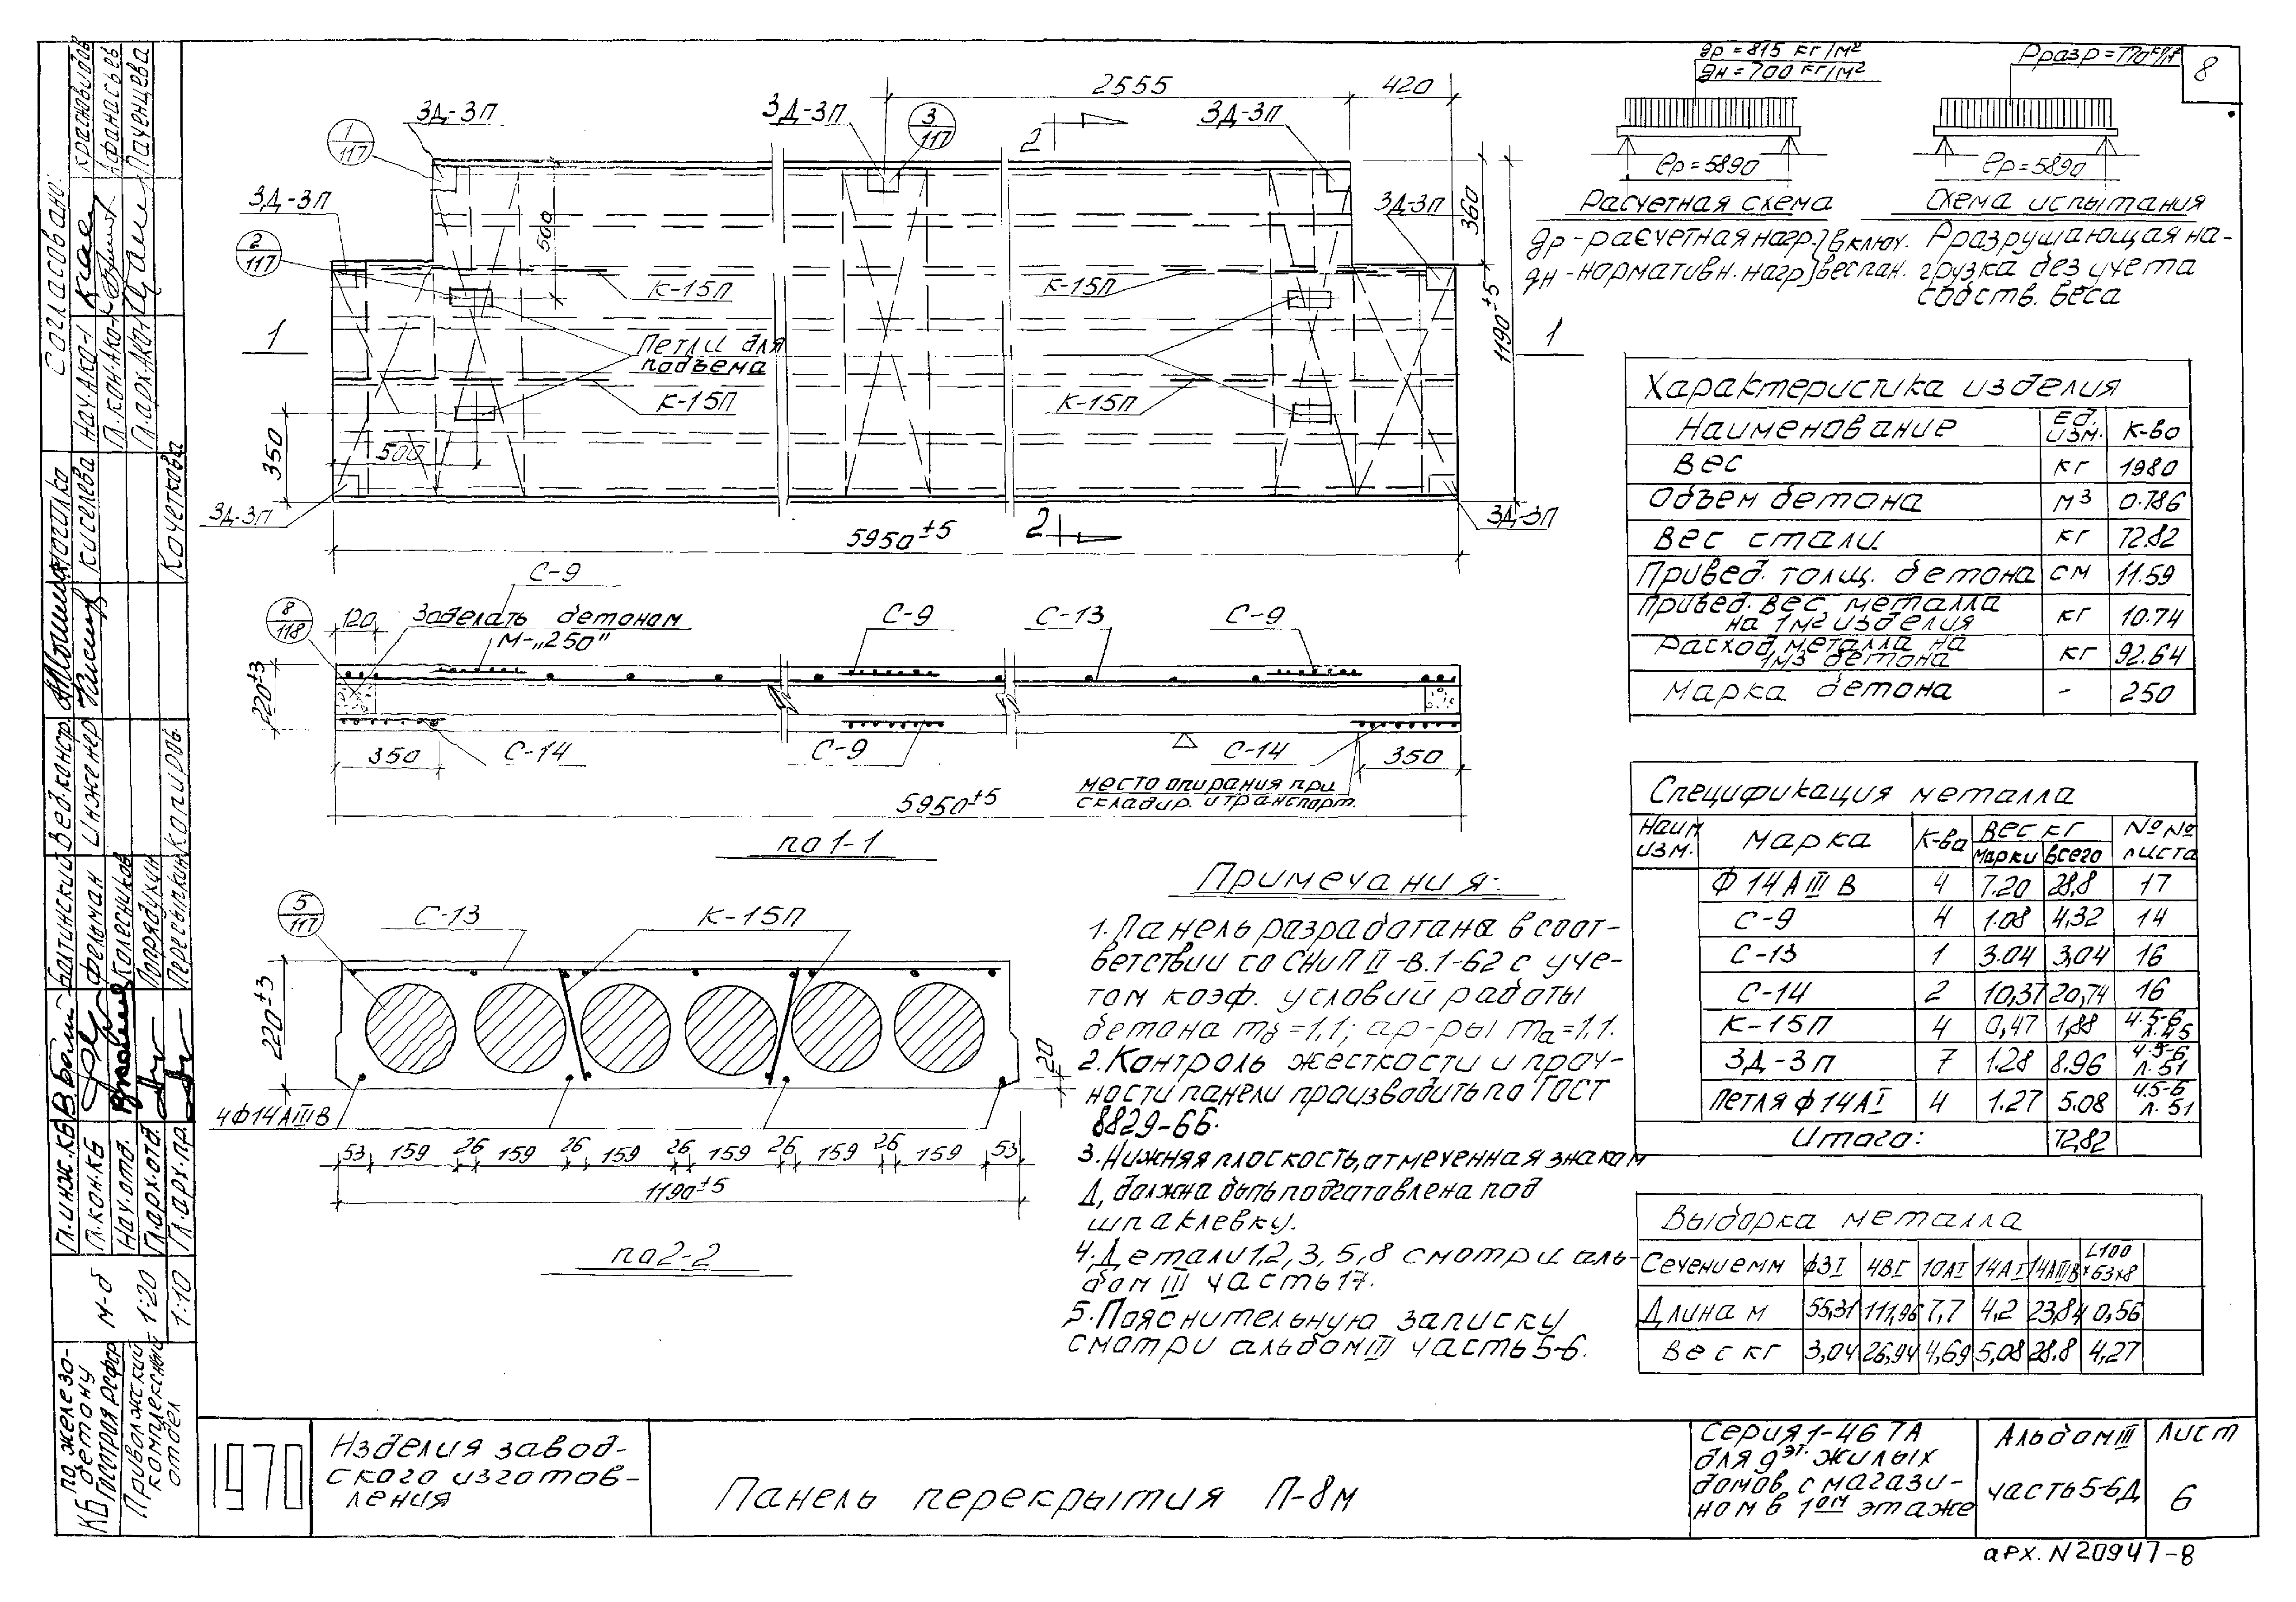 8
qр = 815 кг/м²
qн = 700 кг/м²
ℓр = 5890
Расчетная схема
qр - расчетная нагр. } включ.
qн - нормативн. нагр } вес пан.
ℓр = 5890
Схема испытания
Рразрушающая на-
грузка без учета
собств. веса
2555
420
ЗД-3П
ЗД-3П
ЗД-3П
1
117
3
117
2
ЗД-3П
2
117
500
360
ЗД-3П
К-15П
К-15П
1190±5
1
1
Петли для
подъема
К-15П
К-15П
350
500
ЗД-3П
ЗД-3П
5950±5
2
С-9
8
118
120
Заделать бетоном
М-„250"
С-9
С-13
С-9
220±3
350
С-14
С-9
С-14
350
место опирания при
складир. и транспорт.
5950±5
по 1-1
5
117
С-13
К-15П
220±3
20
4Ф14АIIIВ
53 159 26 159 26 159 26 159 26 159 26 159 53
1190±5
по 2-2
Примечания:
1. Панель разработана в соот-
ветствии со СНиП II-В.1-62 с уче-
том коэф. условий работы
бетона mб = 1,1; ар-ры mа = 1,1.
2. Контроль жесткости и проч-
ности панели производить по ГОСТ
8829-66.
3. Нижняя плоскость, отмеченная знаком
Δ, должна быть подготовлена под
шпаклевку.
4. Детали 1,2,3,5,8 смотри аль-
бом III часть 17.
5. Пояснительную записку
смотри альбом III часть 5-6.
Характеристика изделия
Наименование Ед. изм. К-во
Вес кг 1980
Объем бетона м³ 0.786
Вес стали кг 72.82
Привед. толщ. бетона см 11.59
Привед. вес металла
на 1м² изделия кг 10.74
Расход металла на
1м3 бетона кг 92.64
Марка бетона - 250
Спецификация металла
Наим изм. Марка К-ва Вес кг марки всего №№ листа
Ф 14АIIIВ 4 7.20 28,8 17
С-9 4 1.08 4,32 14
С-13 1 3.04 3,04 16
С-14 2 10,37 20,74 16
К-15П 4 0,47 1,88 ч.5-6 л.45
ЗД-3П 7 1.28 8.96 ч.5-6 л.51
Петля ф14АI 4 1.27 5.08 ч.5-6 л.51
Итого: 72,82
Выборка металла
Сечение мм ф3I 4ВI 10АI 14АI 14АIIIВ L100×63×8
Длина м 55,31 111,96 7,7 4,2 23,84 0,56
Вес кг 3,04 26,94 4,69 5,08 28.8 4,27
Согласовано:
Нач. АКО-1
Гл. кон. АКО-1
Гл. арх. АКО-1
Афанасьев
Паченцева
Вед. констр.
Инженер
Киселева
Копиров.
Кочеткова
Гл. инж. КБ
Гл. кон. КБ
Нач. отд.
Гл. арх. отд.
Гл. арх. пр.
Батинский
Фельман
Колесников
Попрядухин
Пересыпкин
М-б
1:20
1:10
КБ по железо-
бетону
Госстроя РСФСР
Приволжский
комплексный
отдел
1970
Изделия завод-
ского изготов-
ления
Панель перекрытия П-8м
Серия 1-467А
для 9эт. жилых
домов с магази-
ном в 1ом этаже
Альбом III
часть 5-6Д
Лист
6
арх. N 20947-8